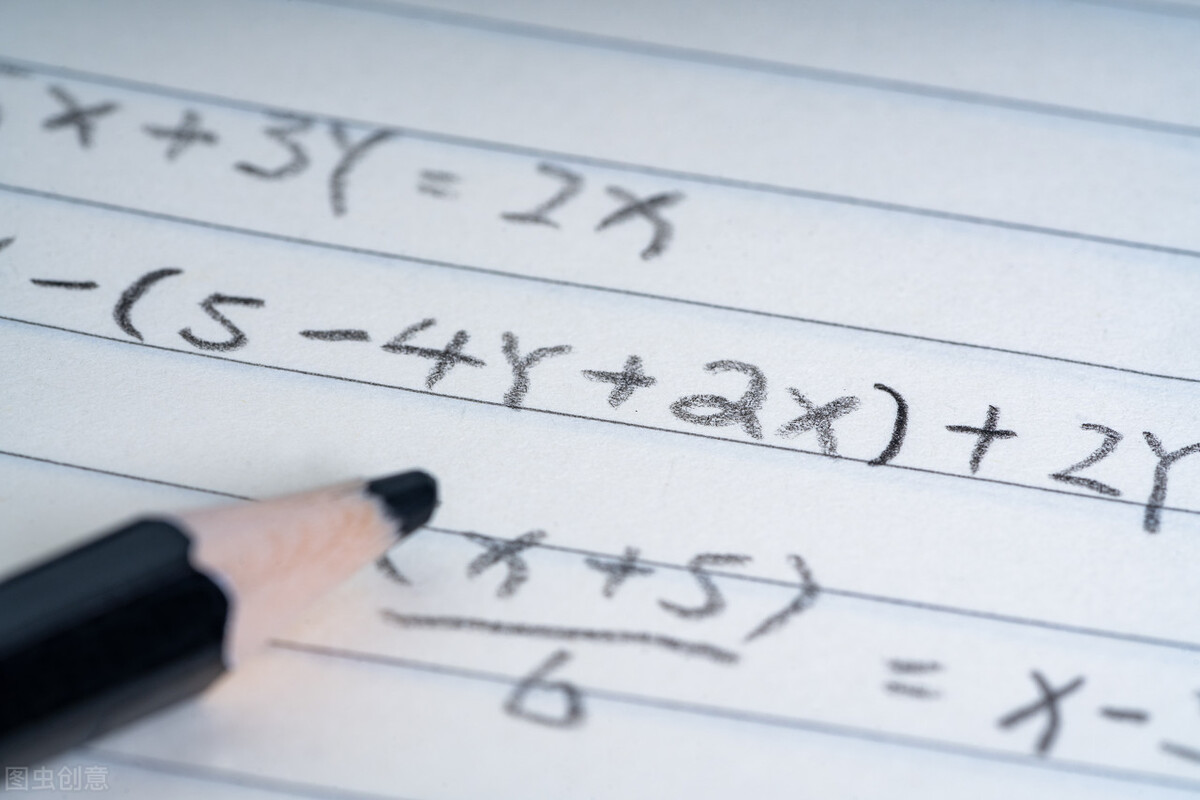 x + 3Y = 2x
-(5 - 4Y + 2x) + 2Y
(x + 5)
6
= x -
图虫创意